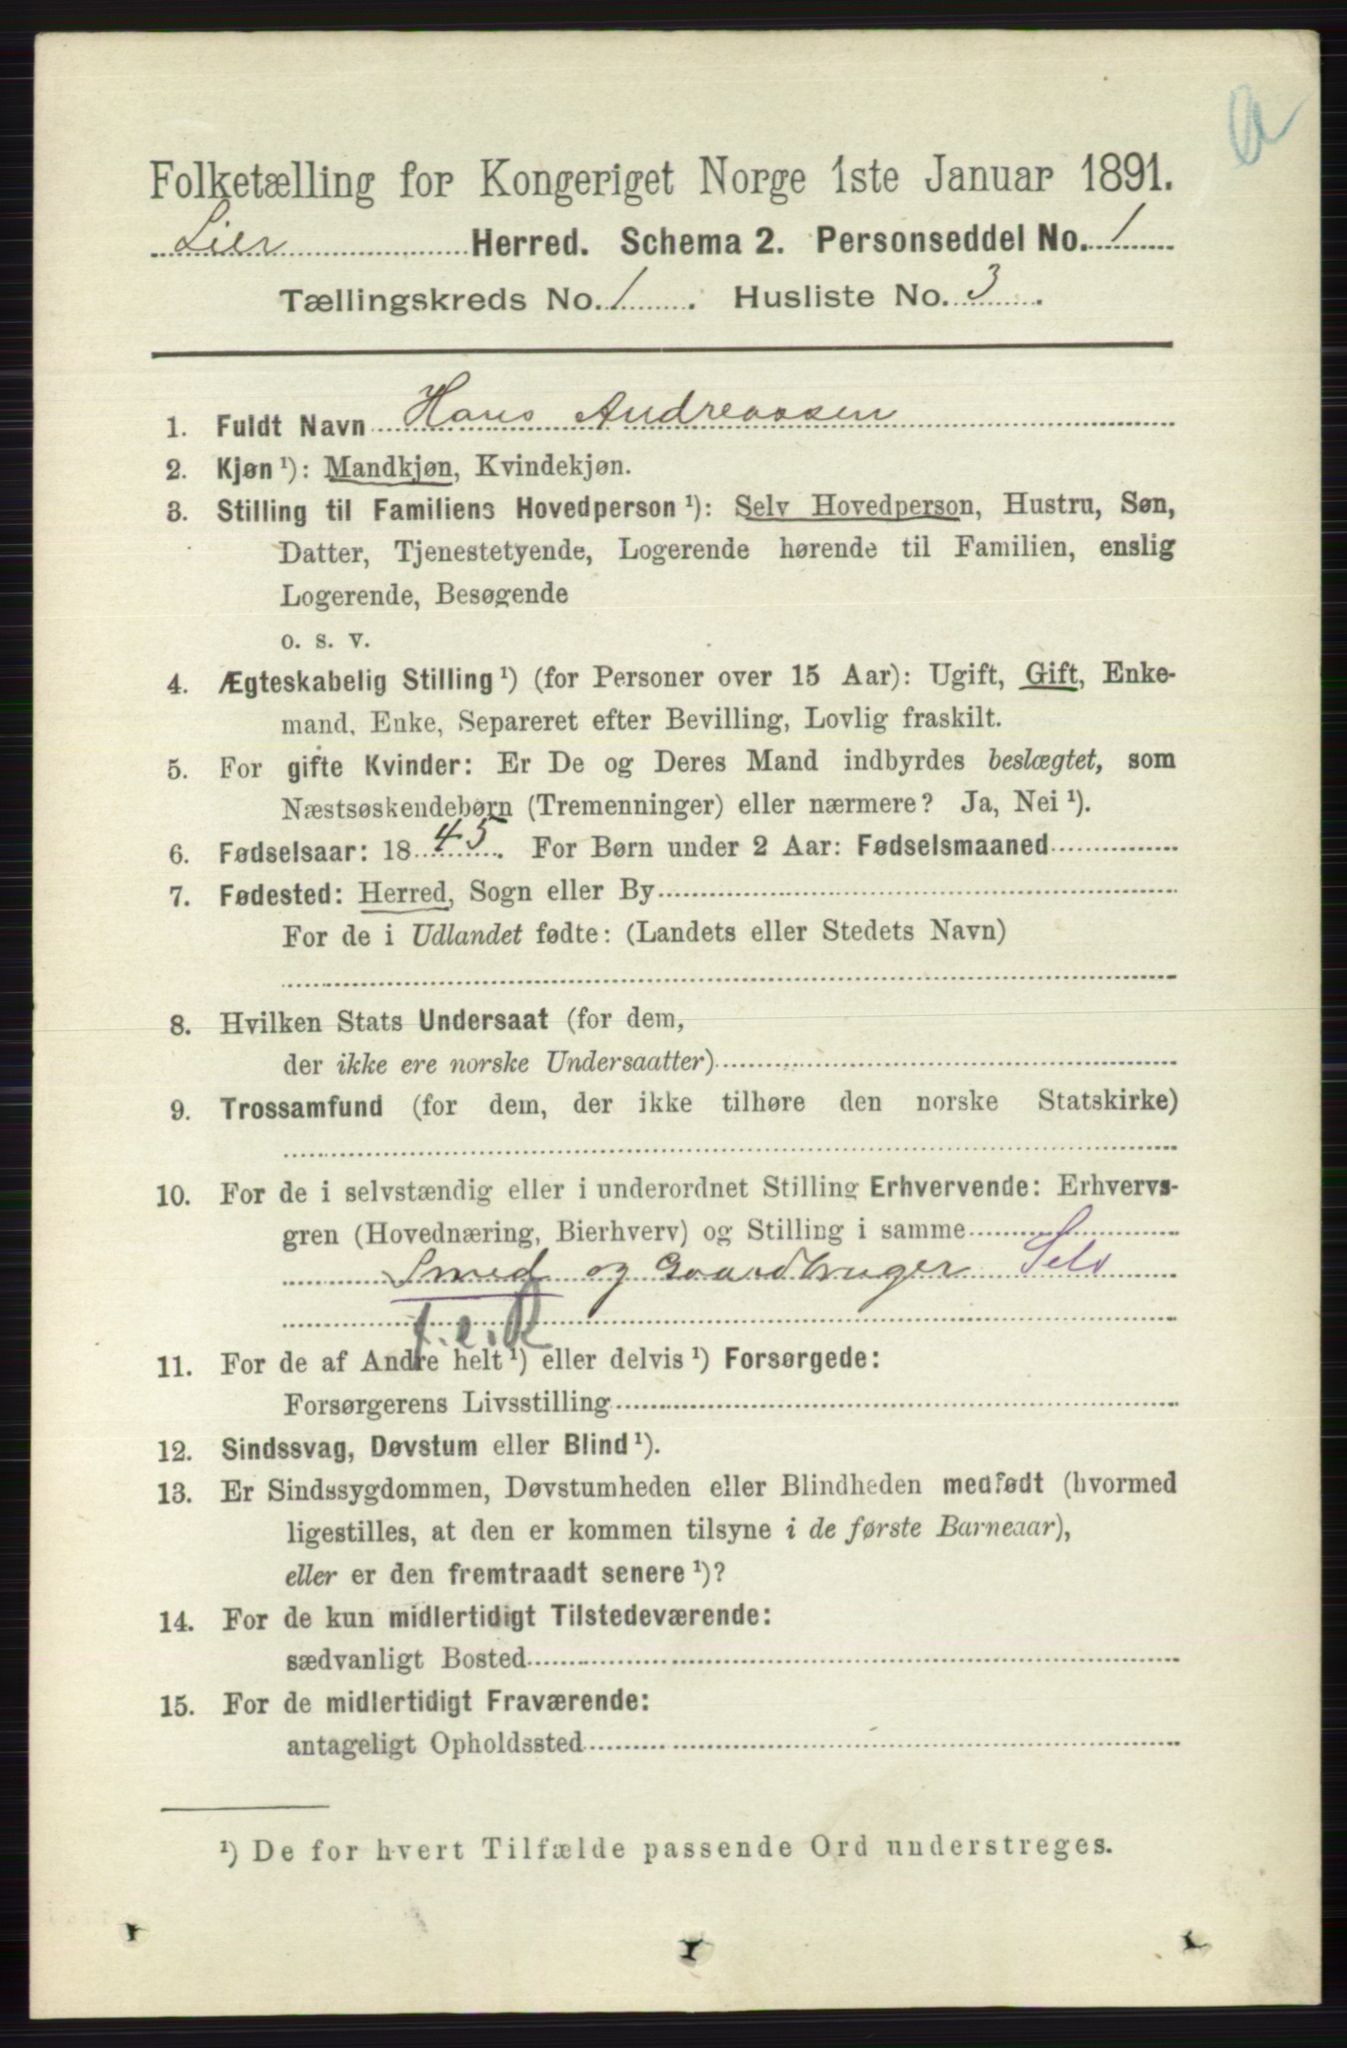 a
Folketælling for Kongeriget Norge 1ste Januar 1891.
Lier Herred. Schema 2. Personseddel No. 1
Tællingskreds No. 1. Husliste No. 3.
1. Fuldt Navn Hans Andreassen
2. Kjøn¹): Mandkjøn, Kvindekjøn.
3. Stilling til Familiens Hovedperson¹): Selv Hovedperson, Hustru, Søn,
Datter, Tjenestetyende, Logerende hørende til Familien, enslig
Logerende, Besøgende
o. s. v.
4. Ægteskabelig Stilling¹) (for Personer over 15 Aar): Ugift, Gift, Enke-
mand, Enke, Separeret efter Bevilling, Lovlig fraskilt.
5. For gifte Kvinder: Er De og Deres Mand indbyrdes beslægtet, som
Næstsøskendebørn (Tremenninger) eller nærmere? Ja, Nei¹).
6. Fødselsaar: 1845. For Børn under 2 Aar: Fødselsmaaned
7. Fødested: Herred, Sogn eller By
For de i Udlandet fødte: (Landets eller Stedets Navn)
8. Hvilken Stats Undersaat (for dem,
der ikke ere norske Undersaatter)
9. Trossamfund (for dem, der ikke tilhøre den norske Statskirke)
10. For de i selvstændig eller i underordnet Stilling Erhvervende: Erhvervs-
gren (Hovednæring, Bierhverv) og Stilling i samme
Smed og Gaardbruger Selv
f.e.R
11. For de af Andre helt¹) eller delvis¹) Forsørgede:
Forsørgerens Livsstilling
12. Sindssvag, Døvstum eller Blind¹).
13. Er Sindssygdommen, Døvstumheden eller Blindheden medfødt (hvormed
ligestilles, at den er kommen tilsyne i de første Barneaar),
eller er den fremtraadt senere¹)?
14. For de kun midlertidigt Tilstedeværende:
sædvanligt Bosted
15. For de midlertidigt Fraværende:
antageligt Opholdssted
¹) De for hvert Tilfælde passende Ord understreges.